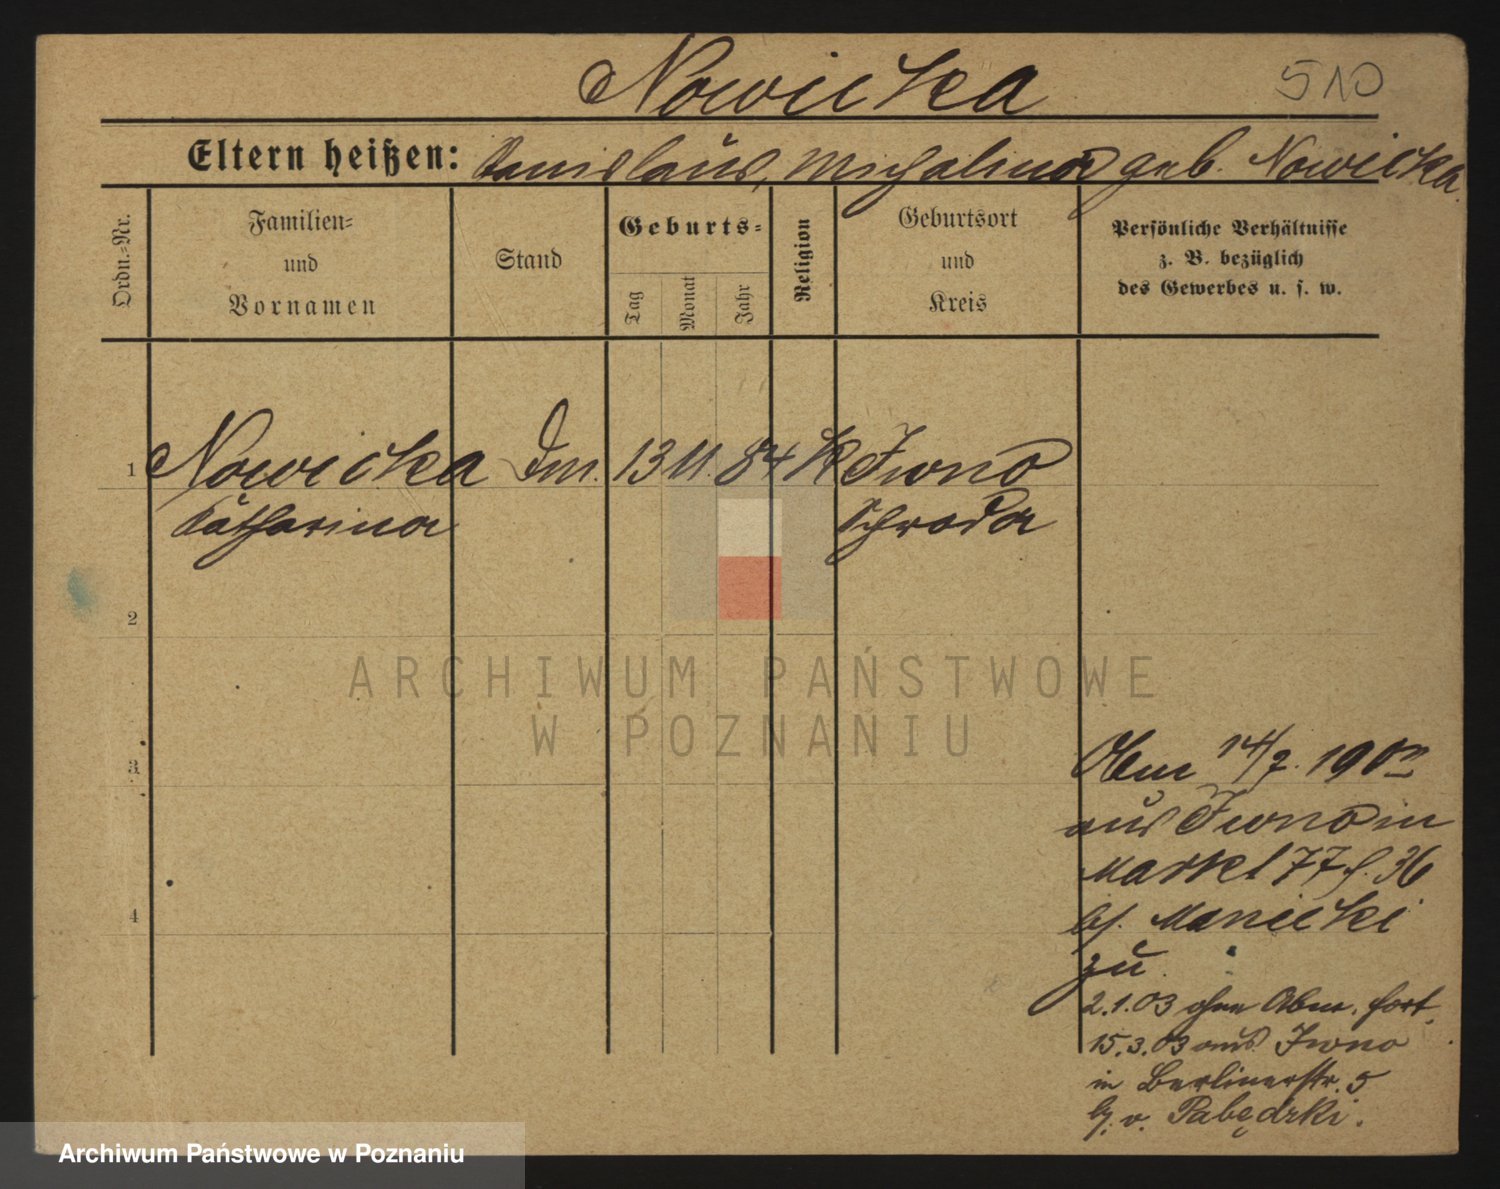 Nowicka
510
Eltern heißen: Stanislaus, Michalina geb. Nowicka.
Ordn.-Nr.
Familien-
und
Vornamen
Stand
Geburts-
Tag
Monat
Jahr
Religion
Geburtsort
und
Kreis
Persönliche Verhältnisse
z. B. bezüglich
des Gewerbes u. s. w.
1 Nowicka 13 11. 84 K Iwno
Katharina Schroda
2
3
4
14/2. 190
aus Iwno in
Markt 77 36
Manicki
zu
2.1.03 ohne Abm. fort.
15.3.03 aus Iwno
in Berlinerstr. 5
b. v. Pabędzki.
ARCHIWUM PAŃSTWOWE
W POZNANIU
Archiwum Państwowe w Poznaniu